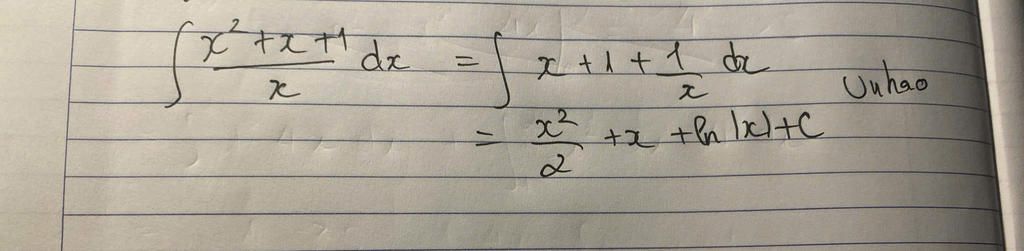 ∫ (x² + x + 1)/x dx = ∫ x + 1 + 1/x dx
= x²/2 + x + ln |x| + C